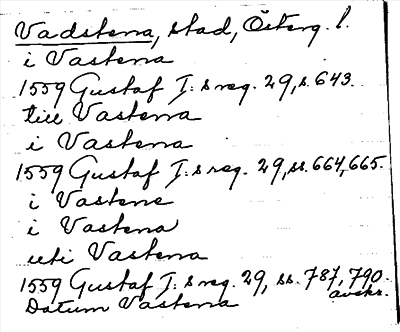 Vadstena, stad, Österg. l.
i Vastena
1559 Gustaf I:s reg. 29, s. 643.
till Vastena
i Vastena
1559 Gustaf I:s reg. 29, ss. 664, 665.
i Vastene
i Vastena
uti Vastena
1559 Gustaf I:s reg. 29, ss. 787, 790.
avskr.
Datum Vastena